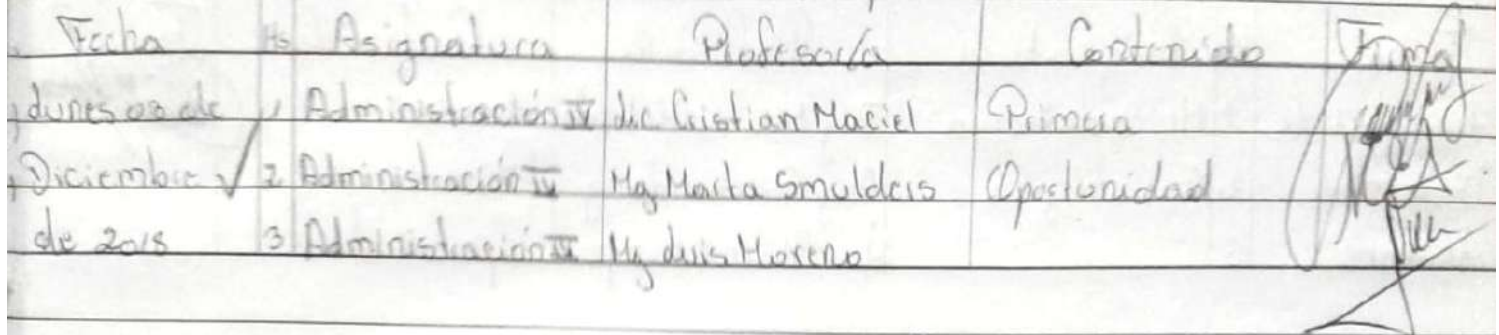 Fecha Hs Asignatura Profesor/a Contenido Firma
Lunes 03 de 1 Administración IV Lic. Cristian Maciel Primera
Diciembre ✓ 2 Administración IV Mg Marta Smulders Oportunidad
de 2018 3 Administración IV Mg Luis Moreno